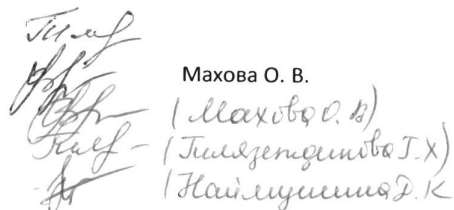 Махова О. В.
(Махова О. В)
(Гилязетдинова Г. Х)
(Наймушина Д. К